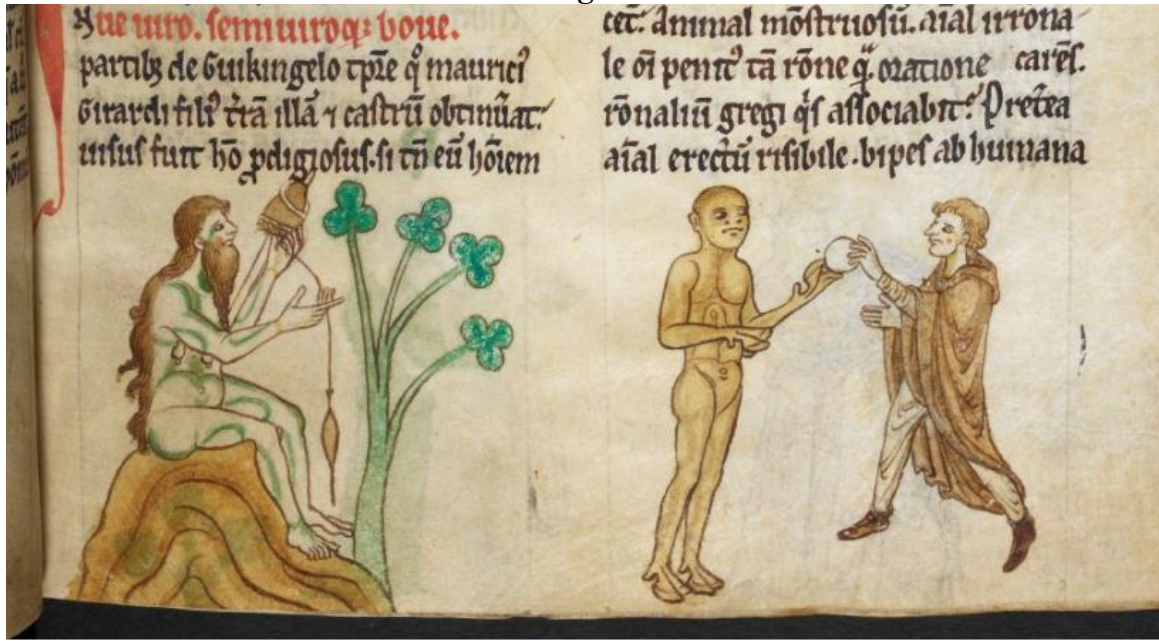 que uiro. semiuiroqꝫ boue.
partibꝫ de Guikingelo tp̄re q̊ mauricꝰ
Girardi filiꝰ t̄rā illā ⁊ castrū obtinūat.
uisus fuit hō ꝓdigiosus. si tn̄ eū hōiem
cet. Animal mōstruosū. aīal irrona
le oī penitꝰ tā rōne qͣ̄ oratione carēs.
rōnaliū gregi qͥs associabit? Pret̄ea
aīal erectū risibile. bipes ab humana